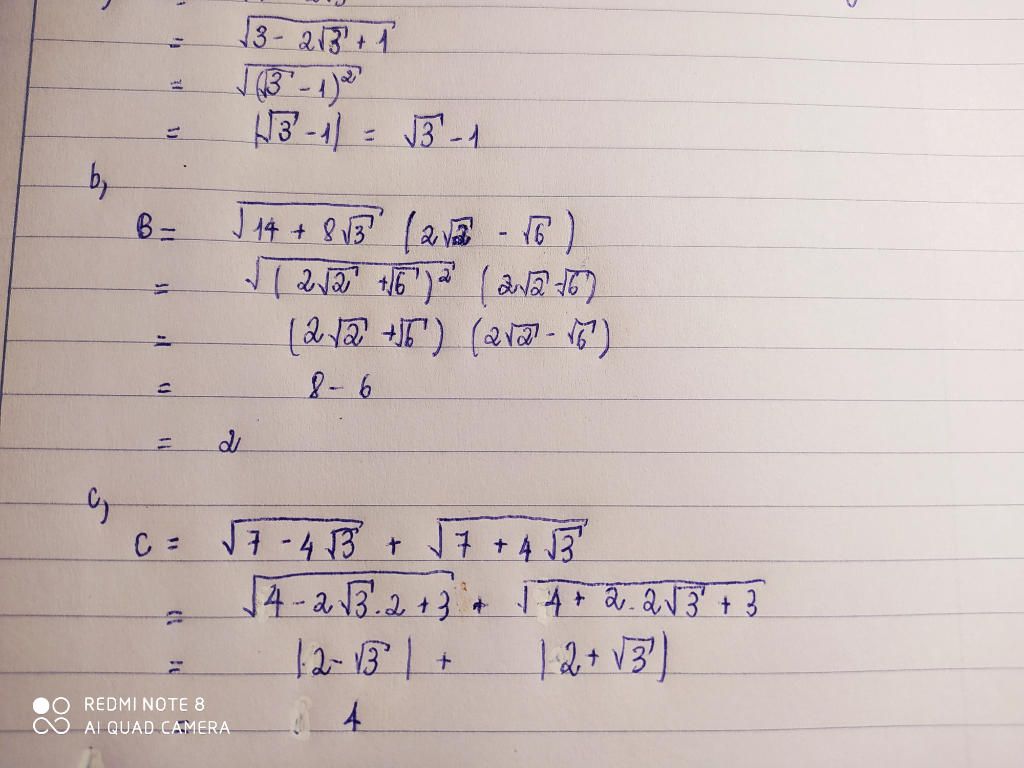 = √3 - 2√3 + 1
= √(√3 - 1)²
= |√3 - 1| = √3 - 1
b,
B = √14 + 8√3 (2√2 - √6)
= √(2√2 + √6)² (2√2 - √6)
= (2√2 + √6) (2√2 - √6)
= 8 - 6
= 2
c,
C = √7 - 4√3 + √7 + 4√3
= √4 - 2√3.2 + 3 + √4 + 2.2√3 + 3
= |2 - √3| + |2 + √3|
= 4
REDMI NOTE 8
AI QUAD CAMERA